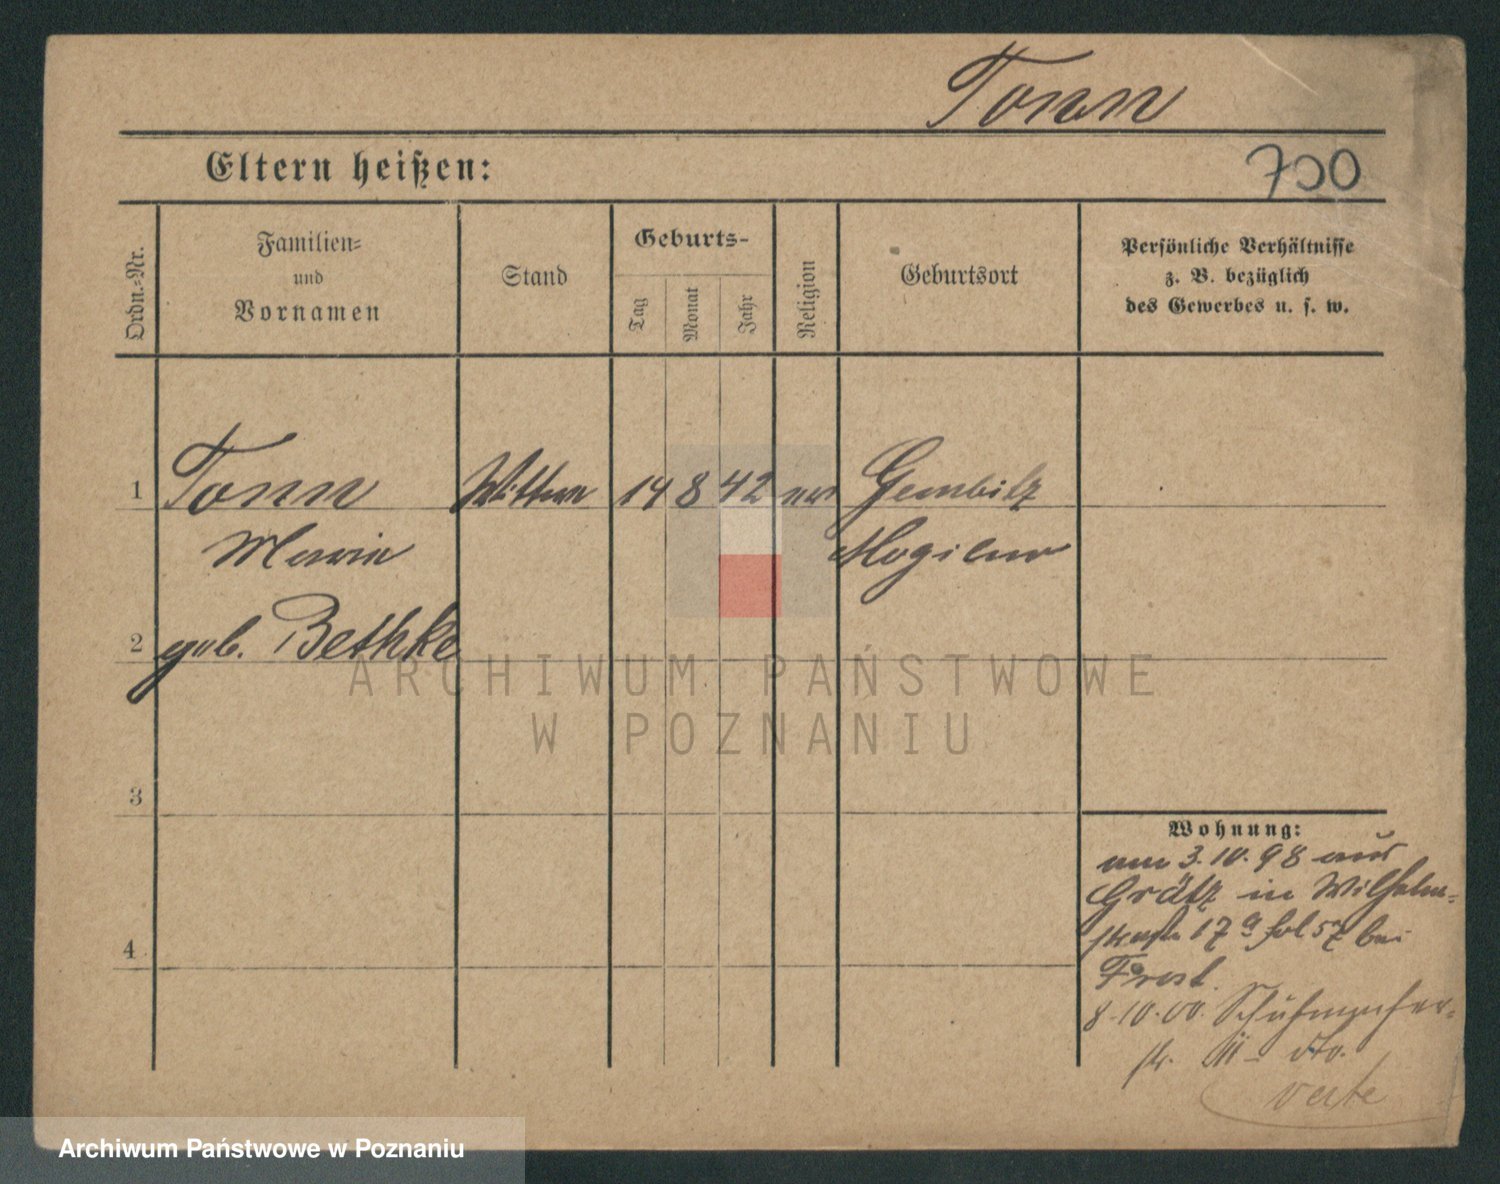 Tonn
Eltern heißen:
700
Ordn.-Nr.
Familien-
und
Vornamen
Stand
Geburts-
Tag
Monat
Jahr
Religion
Geburtsort
Persönliche Verhältnisse
z. B. bezüglich
des Gewerbes u. s. w.
1 Tonn Wittwe 14 8 42 Gembitz
Marie Mogilno
2 geb. Bethke
ARCHIWUM PAŃSTWOWE
W POZNANIU
3
Wohnung:
am 3.10.98 aus
Grätz in Wilhelm-
straße 17a fol 57 bei
4 Frost.
8.10.00. Schuhmacher-
str. dto.
verte
Archiwum Państwowe w Poznaniu